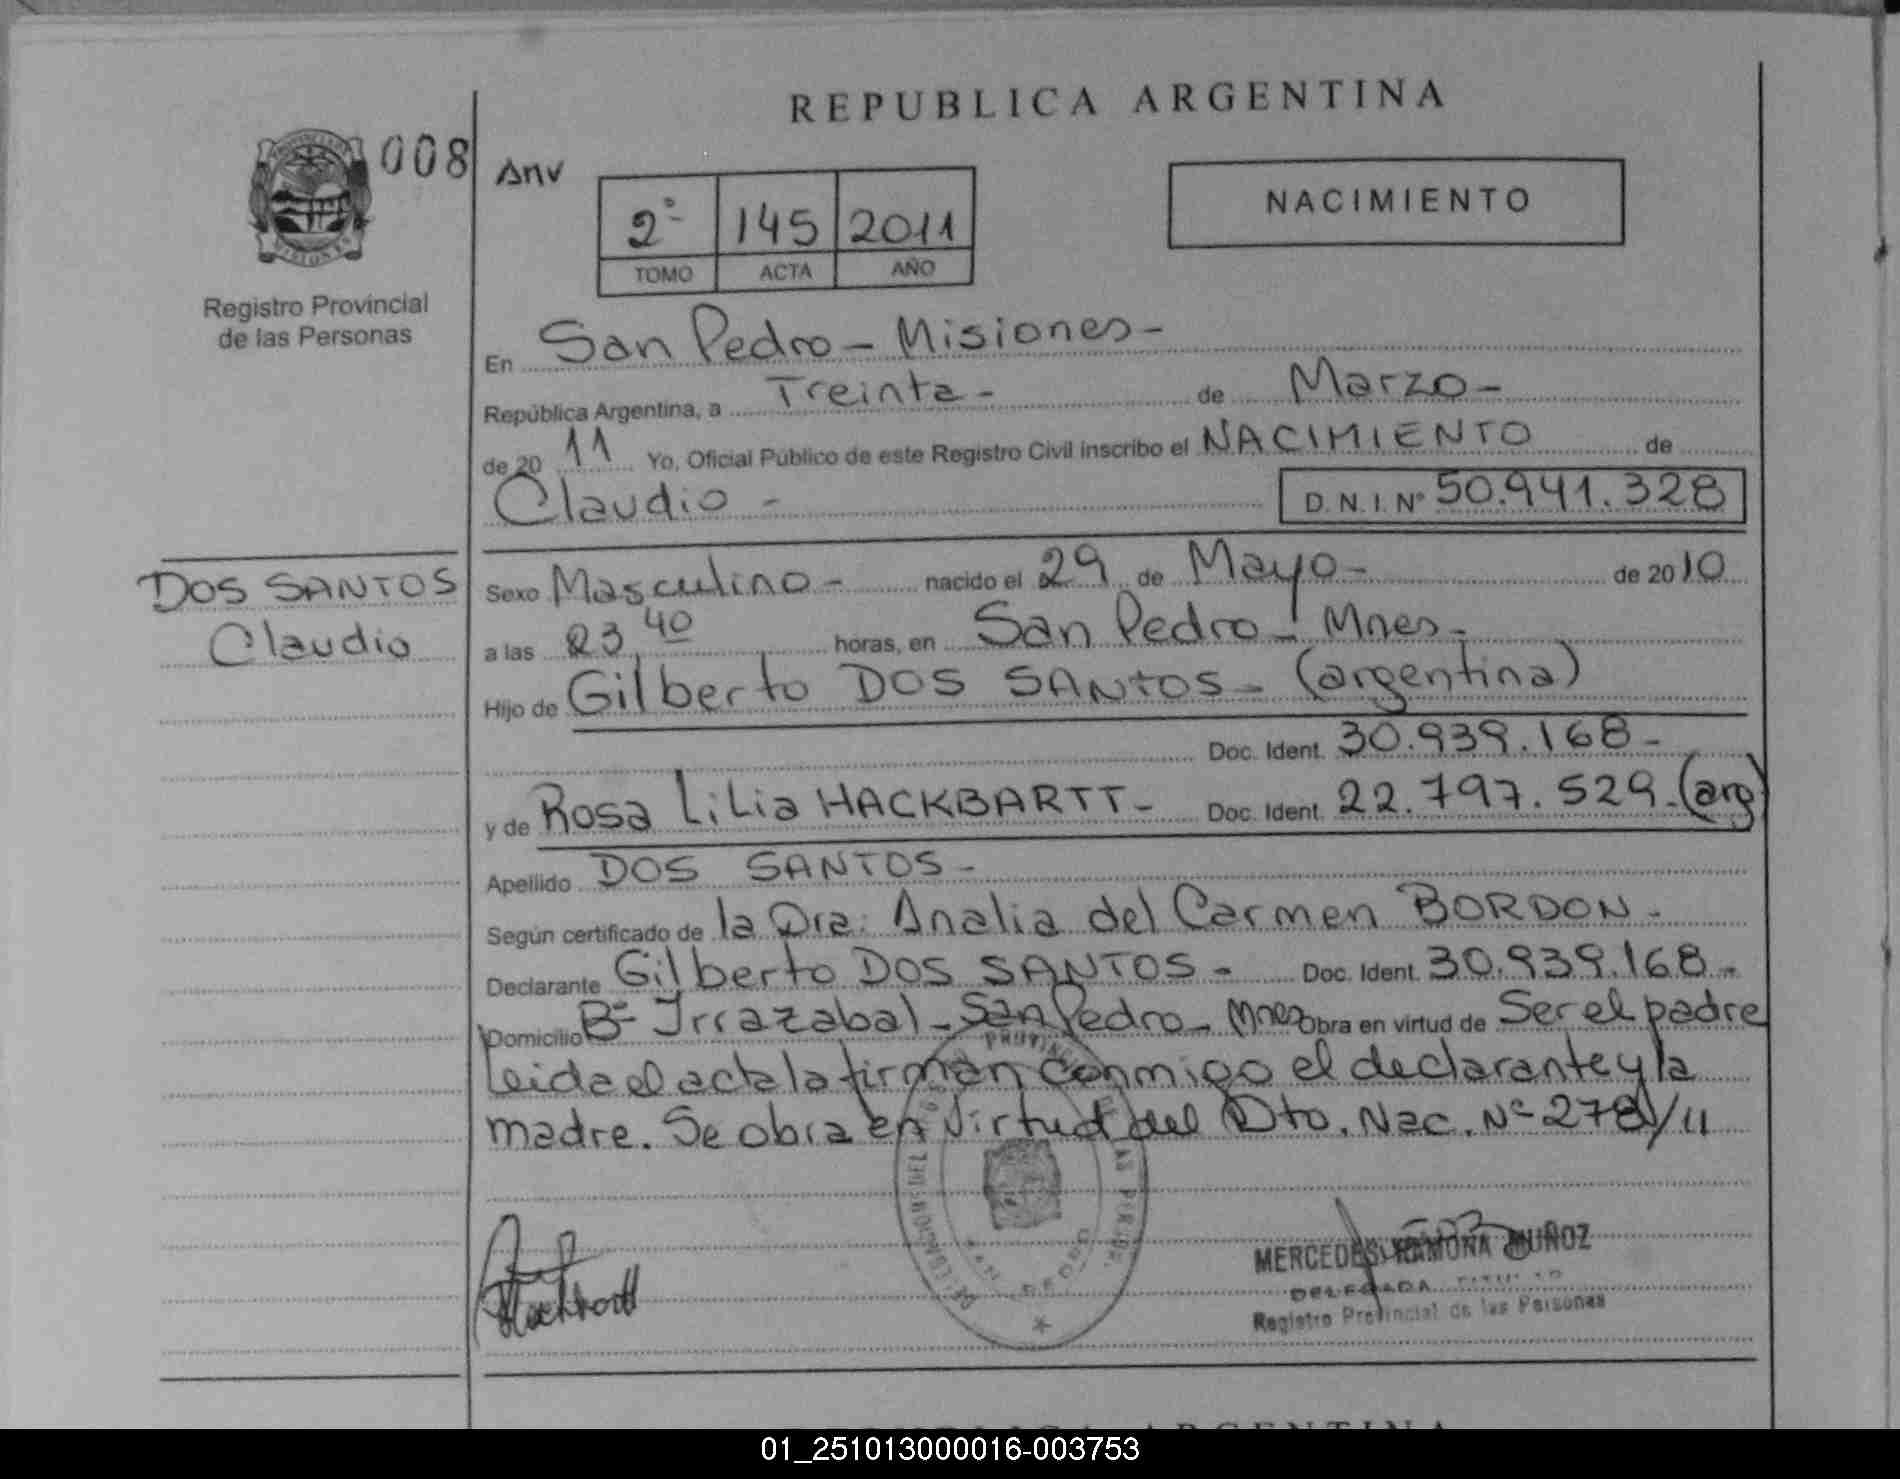 REPUBLICA ARGENTINA
008
Anv
2º 145 2011
TOMO ACTA AÑO
NACIMIENTO
Registro Provincial
de las Personas
En San Pedro - Misiones -
República Argentina, a Treinta - de Marzo -
de 20 11 Yo, Oficial Público de este Registro Civil inscribo el NACIMIENTO de
Claudio - D.N.I. Nº 50.941.328
DOS SANTOS
Claudio
Sexo Masculino - nacido el 29 de Mayo - de 2010
a las 23 40 horas, en San Pedro - Mnes -
Hijo de Gilberto DOS SANTOS - (argentina)
Doc. Ident. 30.939.168 -
y de Rosa Lilia HACKBARTT - Doc. Ident. 22.797.529 - (arg)
Apellido DOS SANTOS -
Según certificado de la Dra. Analia del Carmen BORDON -
Declarante Gilberto DOS SANTOS - Doc. Ident. 30.939.168 -
Domicilio Bº Irrazabal - San Pedro - Mnes Obra en virtud de Ser el padre
Leida el acta la firman conmigo el declarante y la
madre. Se obra en virtud del Dto. Nac. Nº 278/11
SAN PEDRO
Hackbartt
MERCEDES RAMONA MUÑOZ
DELEGADA TITULAR
Registro Provincial de las Personas
01_251013000016-003753